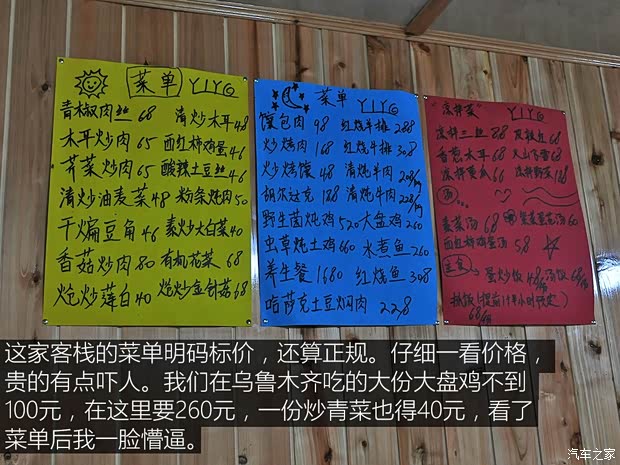 菜单 YIYG
青椒肉丝 68 清炒木耳 48
木耳炒肉 65 西红柿鸡蛋 46
芹菜炒肉 65 酸辣土豆丝 46
清炒油麦菜 48 粉条炖肉 50
干煸豆角 46 素炒大白菜 40
香菇炒肉 80 有机花菜 68
炝炒莲白 40 炝炒金针菇 68
菜单 YIYG
馕包肉 98 红烧牛排 288
炒烤肉 168 红烧羊排 308
炒烤馕 48 清炖羊肉 208/kg
胡尔达克 188 清炖牛肉 228/kg
野生菌炖鸡 520 大盘鸡 260
虫草炖土鸡 660 水煮鱼 260
养生餐 1680 红烧鱼 308
哈萨克土豆焖肉 228
"凉拌菜" YIYG
凉拌三丝 88 皮辣红 68
香葱木耳 68 火山飞雪 68
凉拌黄瓜 66 凉拌野菜 128
汤
素菜汤 68 紫菜蛋花汤 60
西红柿鸡蛋汤 58
主食
蛋炒饭 汤饭 68/份
抓饭(提前1个半小时预定)
68/份
这家客栈的菜单明码标价，还算正规。仔细一看价格，
贵的有点吓人。我们在乌鲁木齐吃的大份大盘鸡不到
100元，在这里要260元，一份炒青菜也得40元，看了
菜单后我一脸懵逼。
汽车之家